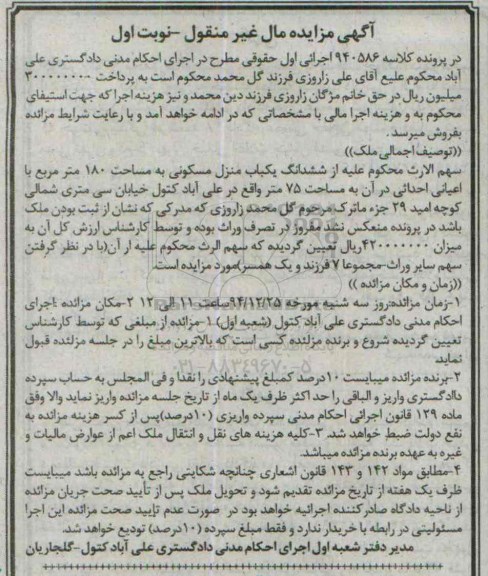 آگهی مزایده مال غیر منقول -نوبت اول
در پرونده کلاسه ۹۴۰۵۸۶ اجرائی اول حقوقی مطرح در اجرای احکام مدنی دادگستری علی
آباد محکوم علیع آقای علی زاروزی فرزند گل محمد محکوم است به پرداخت ۳۰۰۰۰۰۰۰۰
میلیون ریال در حق خانم مژگان زاروزی فرزند دین محمد و نیز هزینه اجرا که جهت استیفای
محکوم به و هزینه اجرا مالی با مشخصاتی که در ادامه خواهد آمد و با رعایت شرایط مزانده
بفروش میرسد .
((توصیف اجمالی ملک))
سهم الارث محکوم علیه از ششدانگ یکباب منزل مسکونی به مساحت ۱۸۰ متر مربع با
اعیانی احداثی در آن به مساحت ۷۵ متر واقع در علی آباد کتول خیابان سی متری شمالی
کوچه امید ۲۹ جزء ماترک مرحوم گل محمد زاروزی که مدرکی که نشان از ثبت بودن ملک
باشد در پرونده منعکس نشد مفروز در تصرف وراث بوده و توسط کارشناس ارزش کل آن به
میزان ۴۲۰۰۰۰۰۰۰ریال تعیین گردیده که سهم الرث محکوم علیه از آن(با در نظر گرفتن
سهم سایر وراث-مجموعا ۷ فرزند و یک همسر)مورد مزایده است.
((زمان و مکان مزانده ))
۱-زمان مزانده:روز سه شنبه مورخه ۹۴/۱۲/۲۵ساعت ۱۱ الی ۱۲ ۲-مکان مزانده :اجرای
احکام مدنی دادگستری علی آباد کتول (شعبه اول) ۱-مزانده از مبلغی که توسط کارشناس
تعیین گردیده شروع و برنده مزلنده کسی است که بالاترین مبلغ را در جلسه مزلنده قبول
نماید
۲-برنده مزانده میبایست ۱۰درصد کمبلغ پیشنهادی را نقدا و فی المجلس به حساب سپرده
دادگستری واریز و الباقی را حد اکثر ظرف یک ماه از تاریخ جلسه مزانده واریز نماید والا وفق
ماده ۱۲۹ قانون اجرائی احکام مدنی سپرده واریزی (۱۰درصد)پس از کسر هزینه مزانده به
نفع دولت ضبط خواهد شد. ۳-کلیه هزینه های نقل و انتقال ملک اعم از عوارض مالیات و
غیره به عهده برنده مزانده میباشد.
۴-مطابق مواد ۱۴۲ و ۱۴۳ قانون اشعاری چنانچه شکایتی راجع به مزانده باشد میبایست
ظرف یک هفته از تاریخ مزانده تقدیم شود و تحویل ملک پس از تأیید صحت جریان مزانده
از ناحیه دادگاه صادرکننده اجرائیه خواهد بود در صورت عدم تایید صحت مزانده این اجرا
مسئولیتی در رابطه با خریدار ندارد و فقط مبلغ سپرده (۱۰درصد) تودیع خواهد شد.
مدیر دفتر شعبه اول اجرای احکام مدنی دادگستری علی آباد کتول-گلجاریان